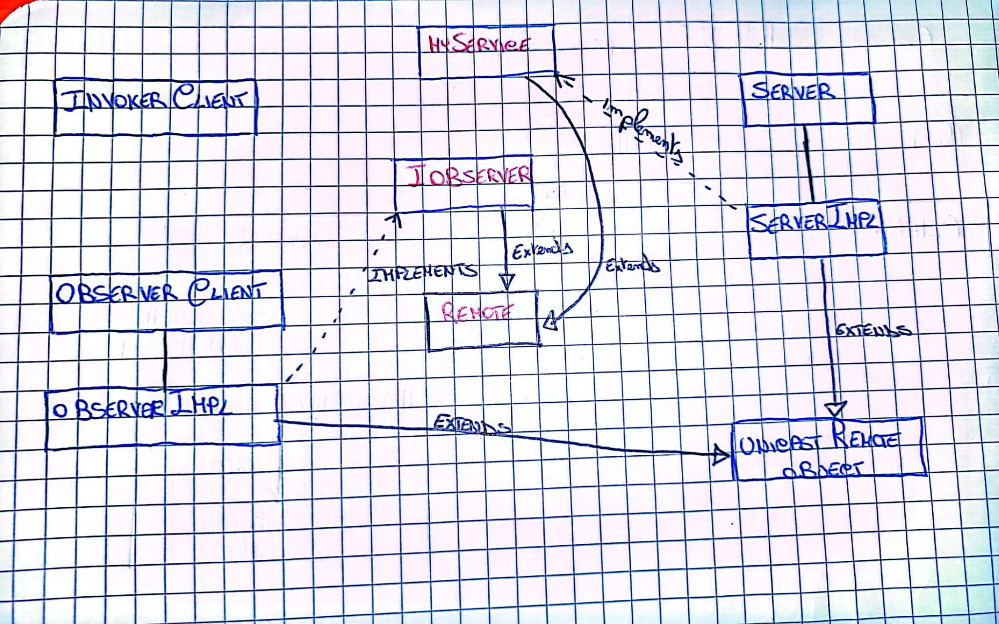 MYSERVICE
INVOKER CLIENT
SERVER
implements
IOBSERVER
SERVERIMPL
Extends
Extends
IMPLEMENTS
OBSERVER CLIENT
REMOTE
EXTENDS
OBSERVERIMPL
EXTENDS
UNICAST REMOTE
OBJECT